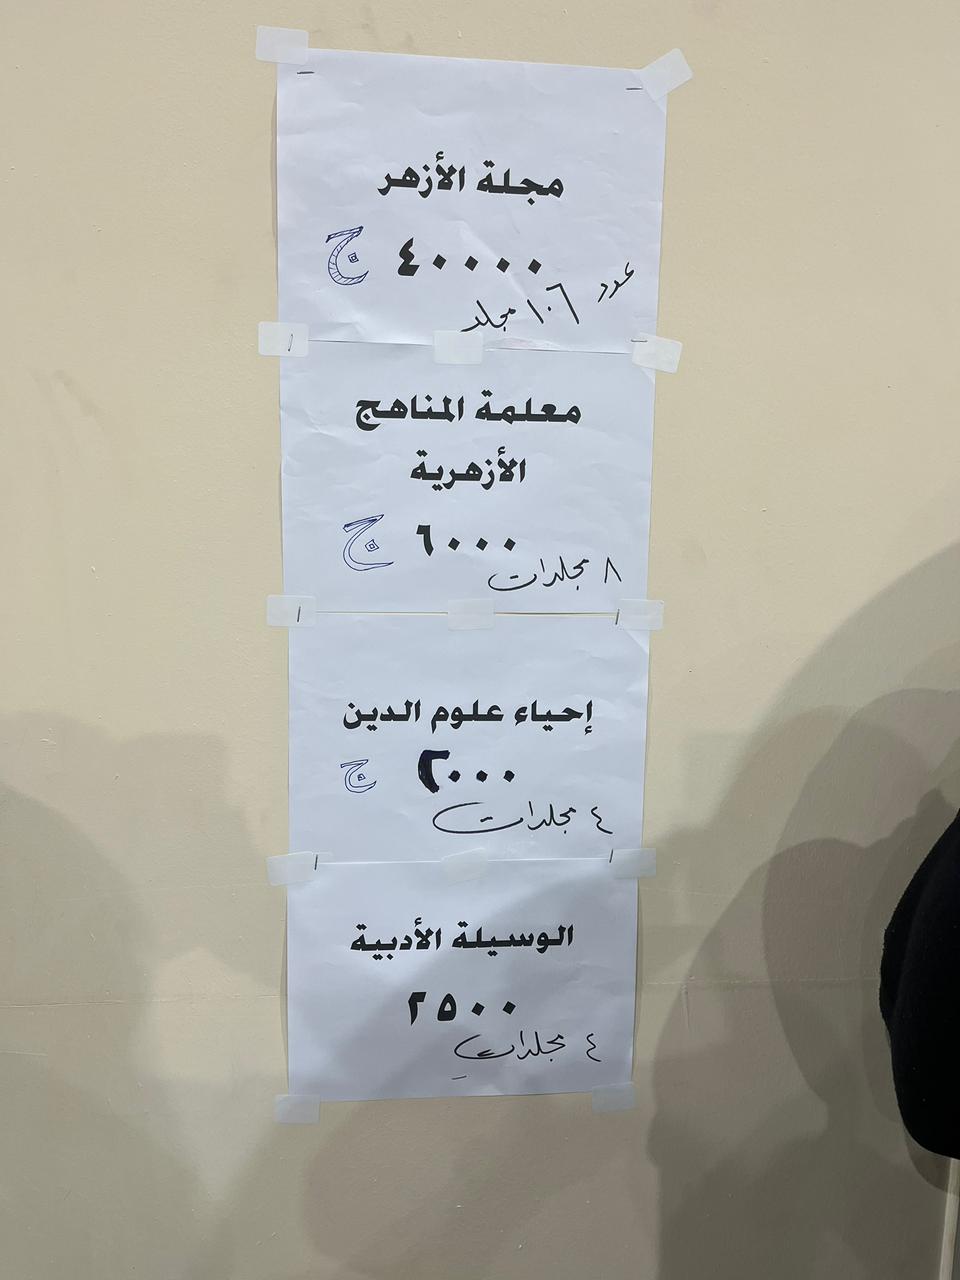 مجلة الأزهر
٤٠٠٠٠ ج
عدد ١٠٦ مجلد
معلمة المناهج
الأزهرية
٦٠٠٠ ج
٨ مجلدات
إحياء علوم الدين
٢٠٠٠ ج
٤ مجلدات
الوسيلة الأدبية
٢٥٠٠
٤ مجلدات